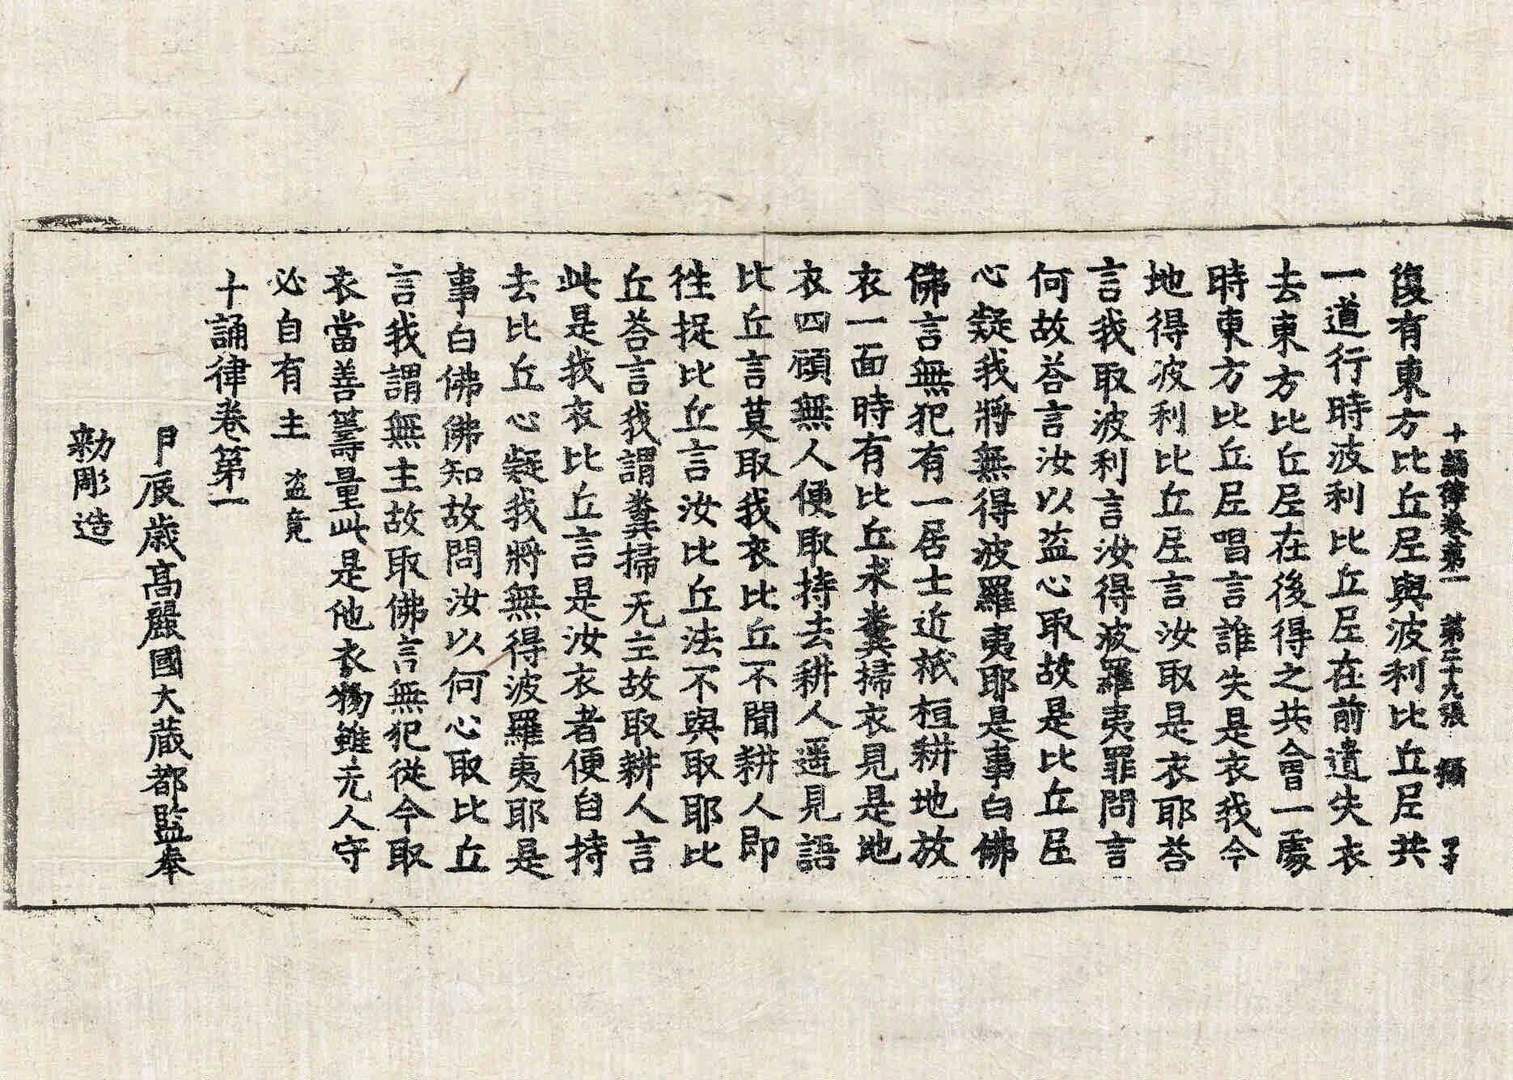 十誦律卷第一　第三十九張　攝
復有東方比丘尼與波利比丘尼共
一道行時波利比丘尼在前遺失衣
去東方比丘尼在後得之共會一處
時東方比丘尼唱言誰失是衣我今
地得波利比丘尼言汝取是衣耶荅
言我取波利言汝得波羅夷罪問言
何故荅言汝以盗心取故是比丘尼
心疑我將無得波羅夷耶是事白佛
佛言無犯有一居士近祇桓耕地放
衣一面時有比丘求糞掃衣見是地
衣四顧無人便取持去耕人遥見語
比丘言莫取我衣比丘不聞耕人即
徃捉比丘言汝比丘法不與取耶比
丘荅言我謂糞掃无主故取耕人言
此是我衣比丘言是汝衣者便自持
去比丘心疑我將無得波羅夷耶是
事白佛佛知故問汝以何心取比丘
言我謂無主故取佛言無犯從今取
衣當善籌量此是他衣物雖无人守
必自有主　盗竟
十誦律卷第一
甲辰歲髙麗國大藏都監奉
勑彫造